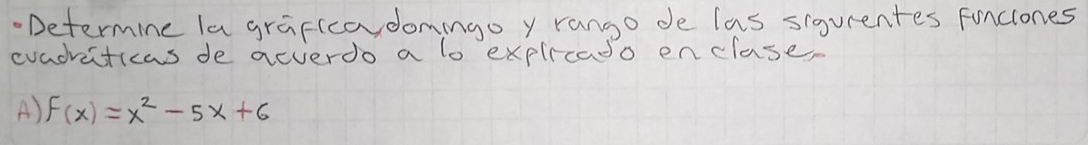 •Determine la gráfica, domingo y rango de las sigurentes funciones
cuadráticas de acuerdo a lo explicado en clase.
A) F(x) = x² - 5x + 6